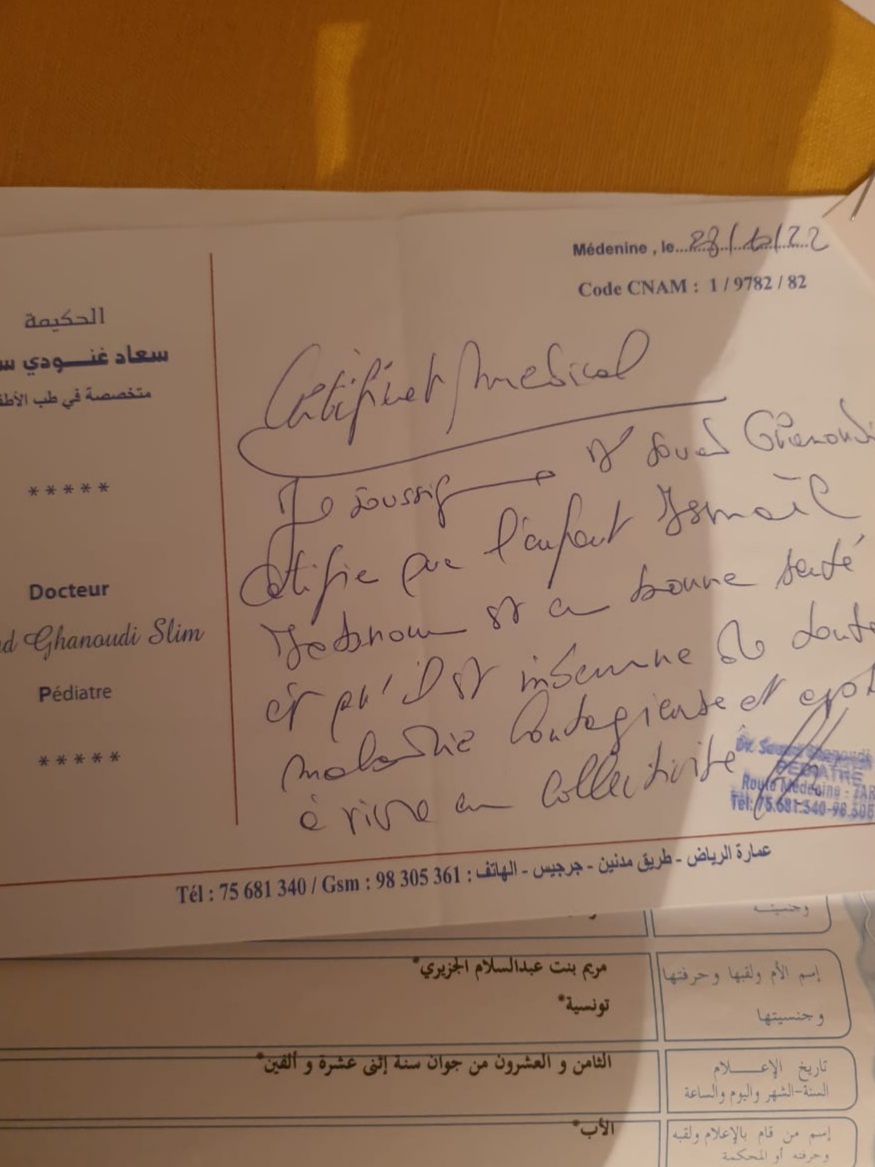 Médenine , le 28/12/22
Code CNAM : 1 / 9782 / 82
الحكيمة
سعاد غنــودي س
متخصصة في طب الأطف
*****
Docteur
d Ghanoudi Slim
Pédiatre
*****
Certificat médical
Je soussigne Dr Souad Ghanoudi
Certifie que l'enfant Ismaïl
est en bonne santé
et qu'il est indemne de toute
maladie contagieuse et apt
à vivre en collectivité
PEDIATRE
Route Médenine - ZAR
Tél: 75.681.340-98.305
عمارة الرياض - طريق مدنين - جرجيس - الهاتف : Tél : 75 681 340 / Gsm : 98 305 361
وجنسيتـه
إسم الأم ولقبها وحرفتها
مريم بنت عبدالسلام الجزيري*
وجنسيتها
تونسية*
تاريخ الإعـــــلام
الثامن و العشرون من جوان سنة إثنى عشرة و ألفين*
السنة-الشهر واليوم والساعة
إسم من قام بالإعلام ولقبه
الأب*
وحرفته أو المحكمة